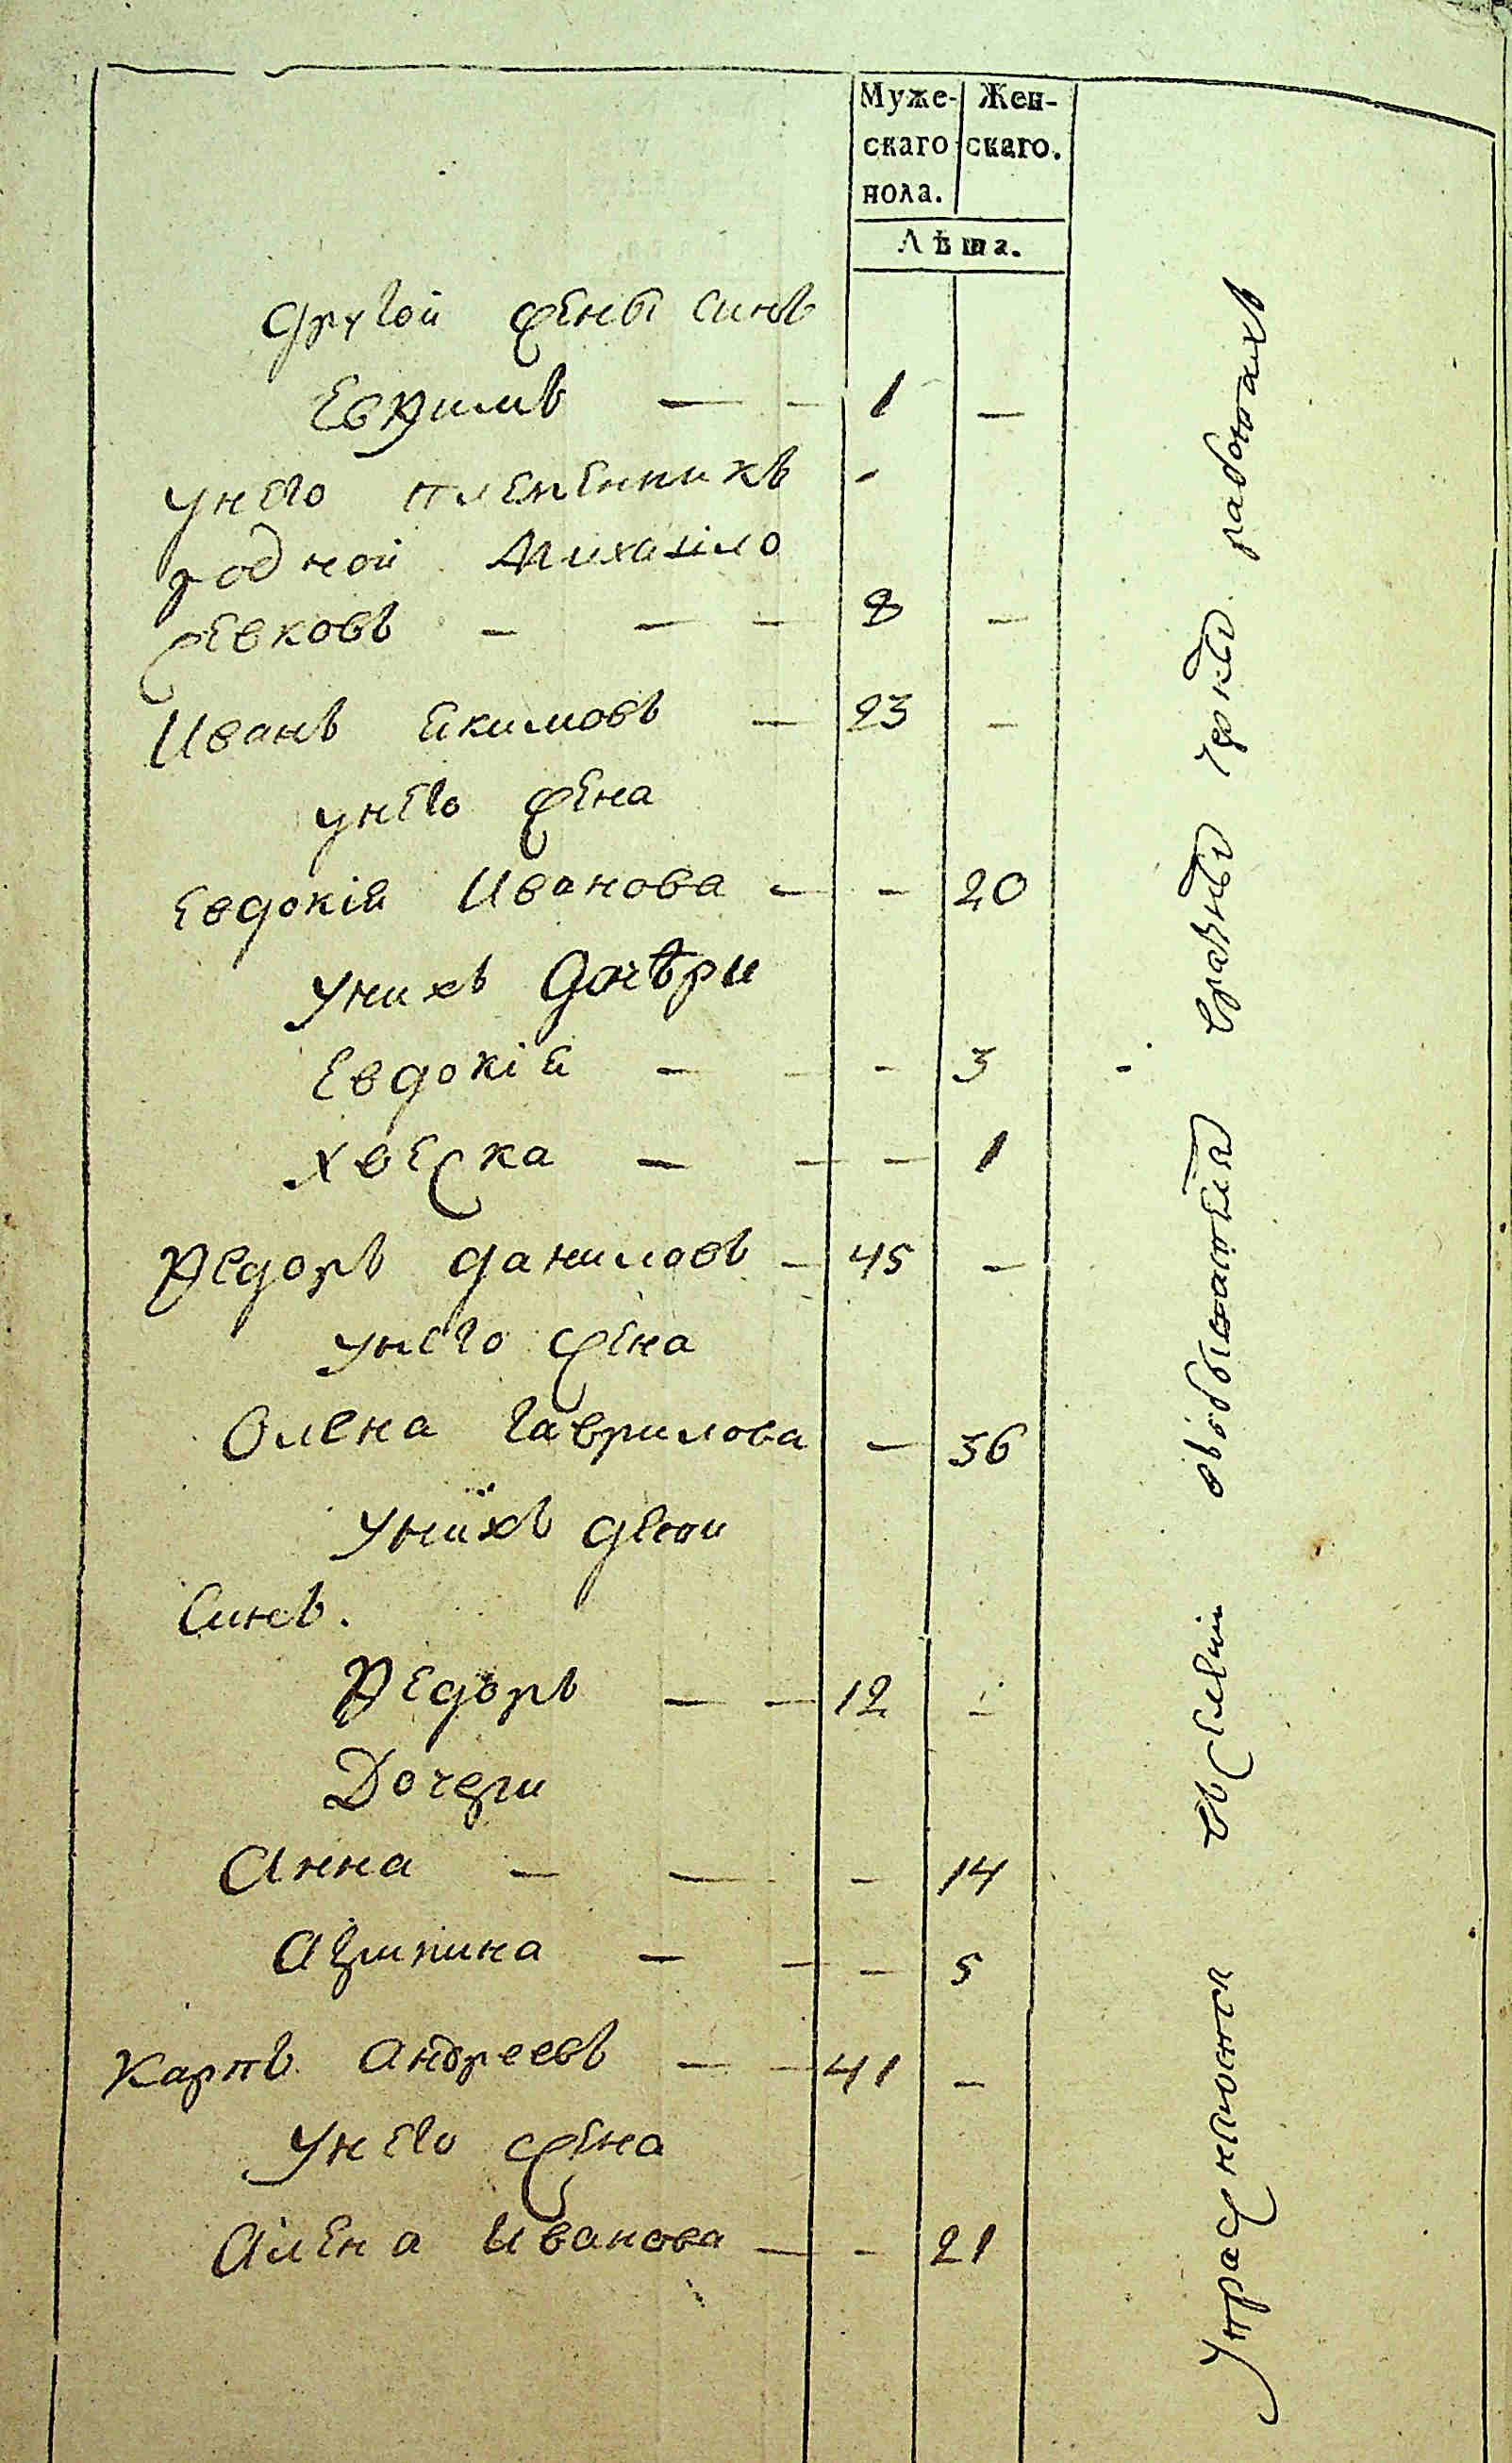 Муже- Жен-
скаго скаго.
пола.
Лѣта.
другой жены синъ
Евфимъ — — 1 —
унего племенникъ -
родной Михаіло
жевковъ - — — 8 —
Иванъ якимовъ — 23 —
унего жена
Евдокія Иванова — - 20
унихъ дочѣри
Евдокія — - - 3
хвеска — — — 1
Федоръ даниловъ — 45 —
унего жена
Олена гаврилова — 36
унихъ дети
Синъ.
Федоръ — — 12 -
Дочери
Анна — — — 14
Агрипина — — — 5
Карпъ андреевъ — — 41 —
унего жена
Алена Иванова — - 21
упражняются въ вразныхъ работахъ